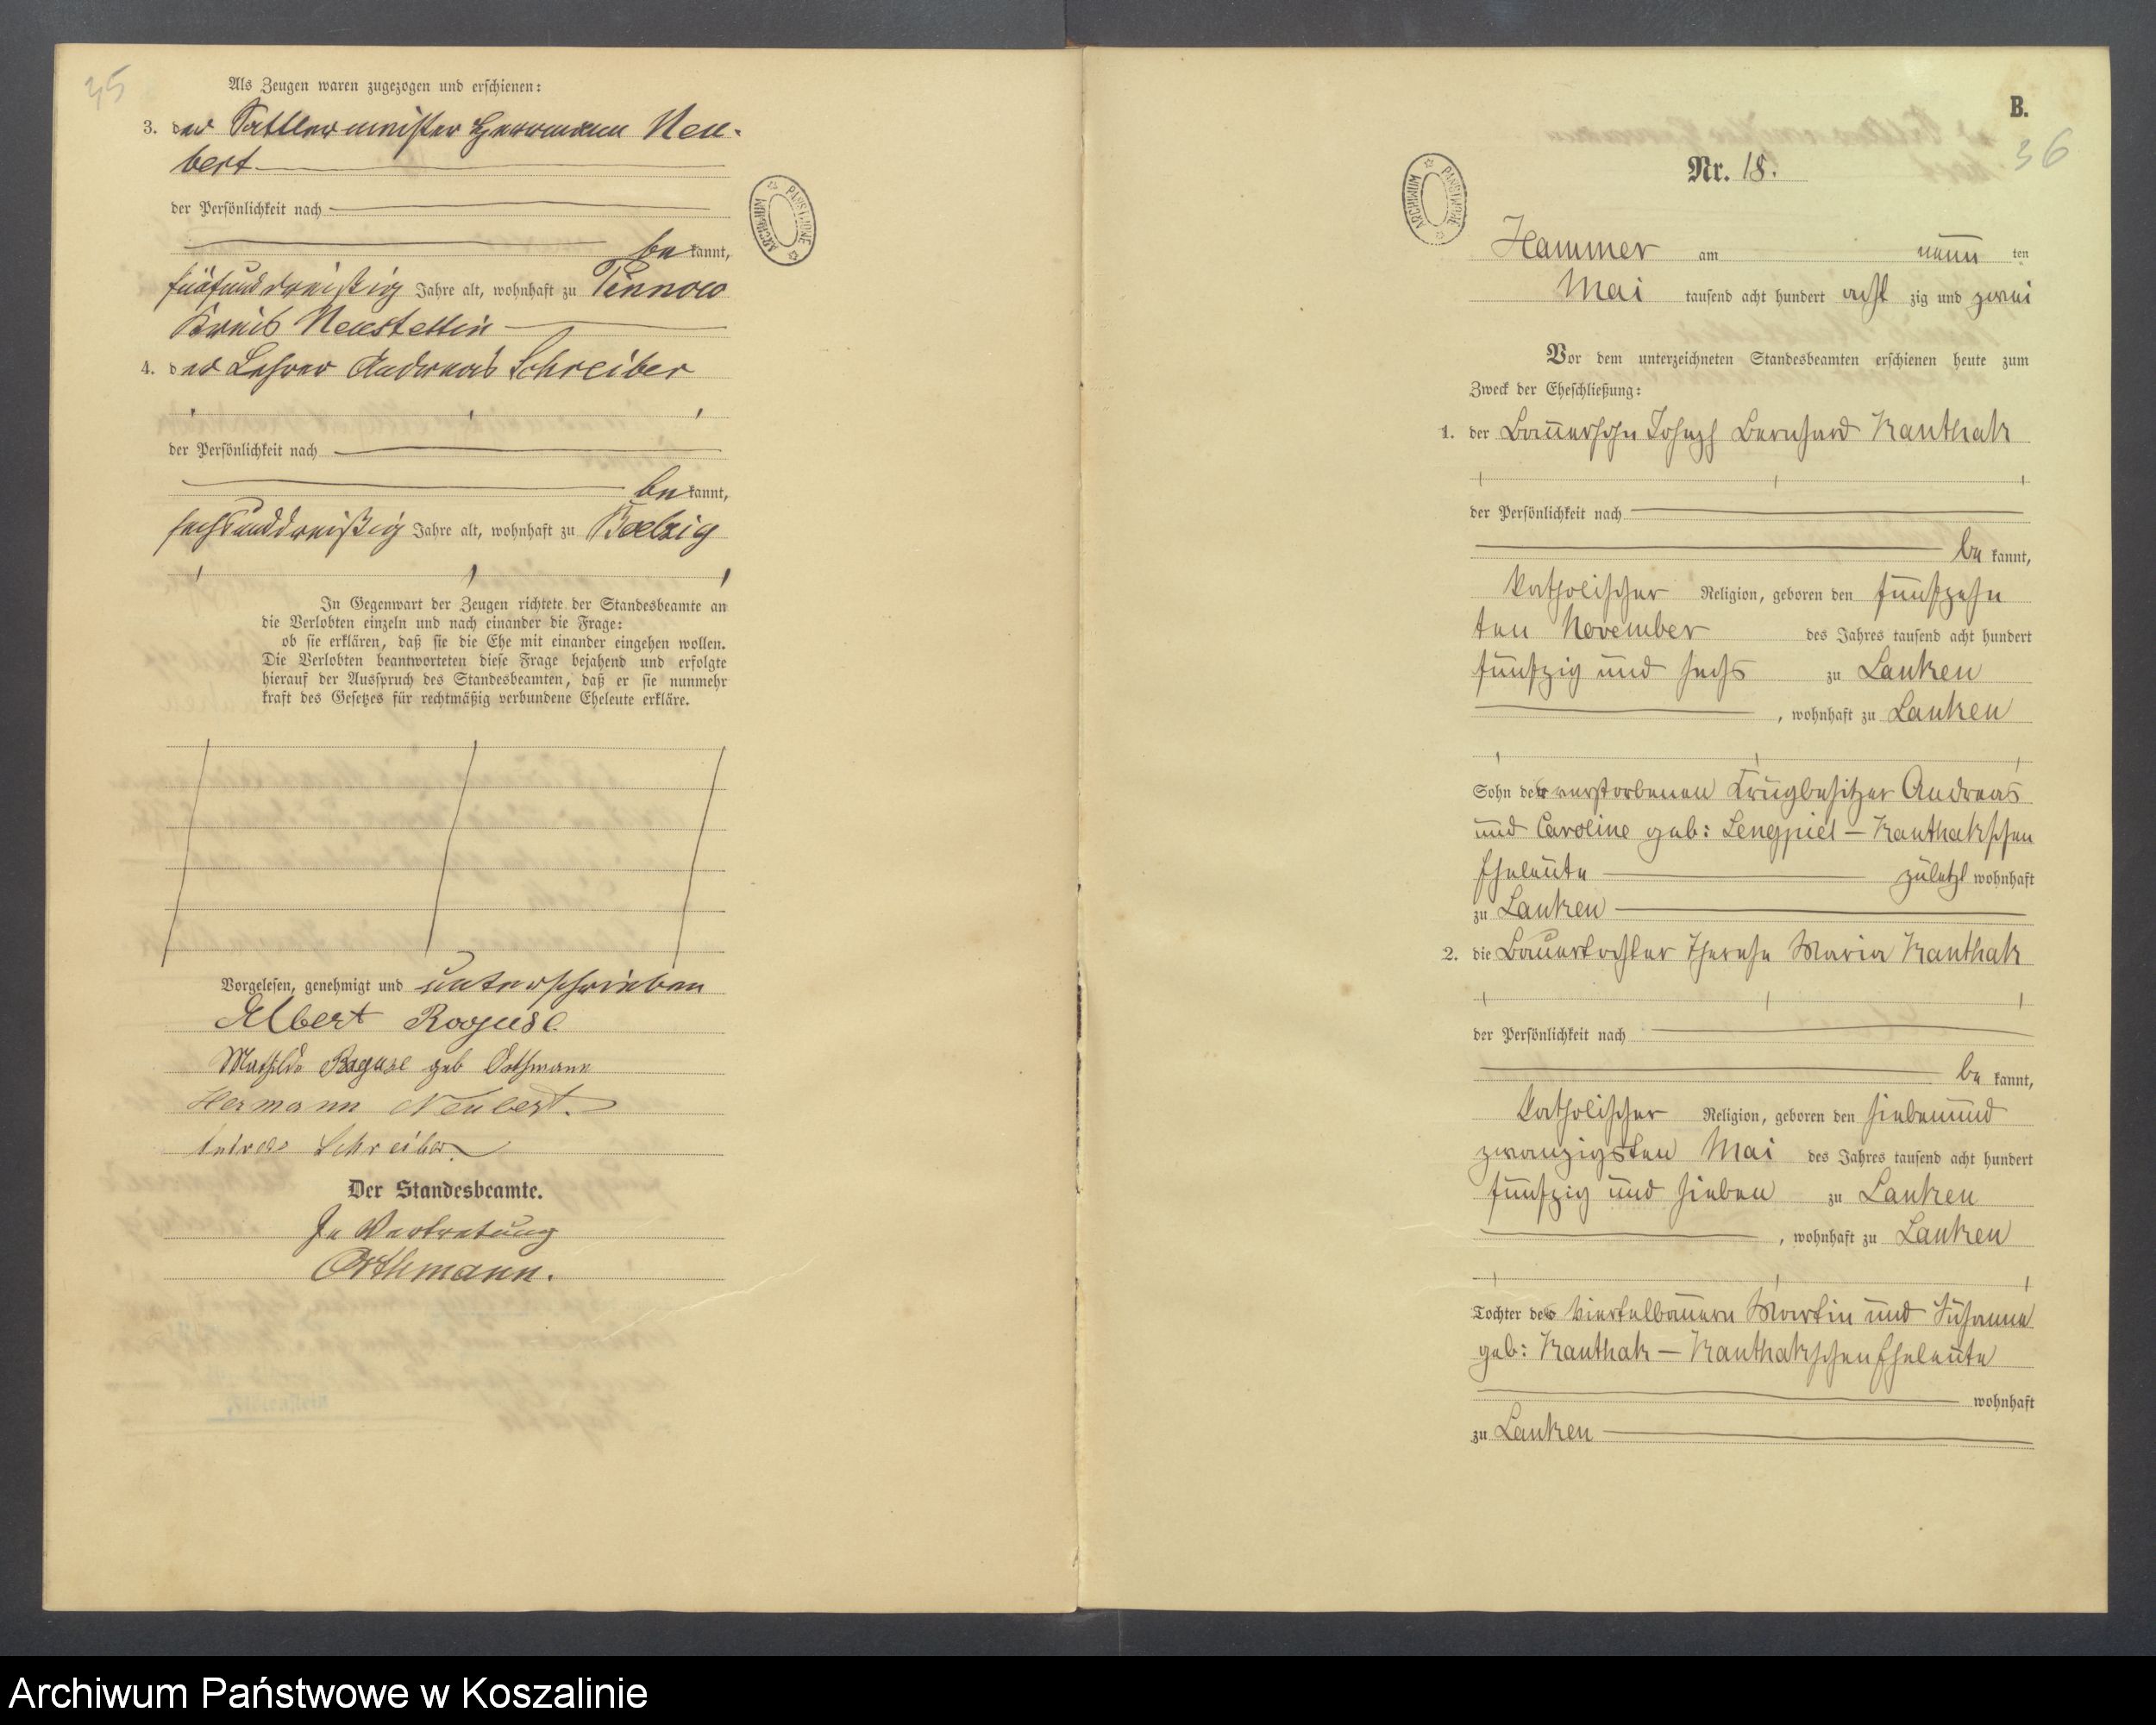 35
Als Zeugen waren zugezogen und erschienen:
3. der Sattlermeister Herrmann Neu-
bert
der Persönlichkeit nach
be kannt,
fünfunddreißig Jahre alt, wohnhaft zu Pennow
Kreis Neustettin
4. der Lehrer Andreas Schreiber
der Persönlichkeit nach
be kannt,
sechsunddreißig Jahre alt, wohnhaft zu Boelzig
In Gegenwart der Zeugen richtete der Standesbeamte an
die Verlobten einzeln und nach einander die Frage:
ob sie erklären, daß sie die Ehe mit einander eingehen wollen.
Die Verlobten beantworteten diese Frage bejahend und erfolgte
hierauf der Ausspruch des Standesbeamten, daß er sie nunmehr
kraft des Gesetzes für rechtmäßig verbundene Eheleute erkläre.
Vorgelesen, genehmigt und unterschrieben
Albert Roguse
Mathilde Raguse geb Orthmann
Hermann Neubert.
Andreas Schreiber.
Der Standesbeamte.
In Vertretung
Orthmann.
ARCHIWUM PAŃSTWOWE
B.
36
ARCHIWUM PAŃSTWOWE
Nr. 18.
Hammer am neun ten
Mai tausend acht hundert acht zig und zwei
Vor dem unterzeichneten Standesbeamten erschienen heute zum
Zweck der Eheschließung:
1. der Bauersohn Joseph Bernhard Kanthak
der Persönlichkeit nach
be kannt,
katholischer Religion, geboren den fünfzehn
ten November des Jahres tausend acht hundert
fünfzig und sechs zu Lanken
, wohnhaft zu Lanken
Sohn der verstorbenen Krugbesitzer Andreas
und Caroline geb: Lengpiel – Kanthakschen
Eheleute zuletzt wohnhaft
zu Lanken
2. die Bauertochter Therese Maria Kanthak
der Persönlichkeit nach
be kannt,
katholischer Religion, geboren den siebenund
zwanzigsten Mai des Jahres tausend acht hundert
fünfzig und sieben zu Lanken
, wohnhaft zu Lanken
Tochter der Viertelbauern Martin und Susanna
geb: Kanthak – Kanthakschen Eheleute
wohnhaft
zu Lanken
Archiwum Państwowe w Koszalinie